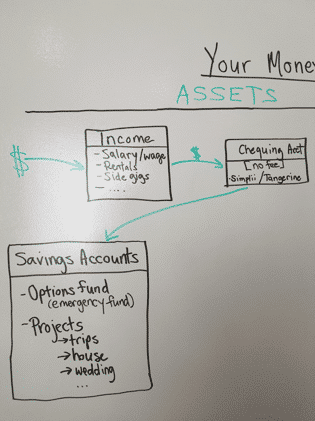 Your Money
ASSETS
$
Income
- Salary/wage
- Rentals
- Side gigs
- ....
$
Chequing Acct
[no fee]
- Simplii/Tangerine
Savings Accounts
- Options fund
(emergency fund)
- Projects
→ trips
→ house
→ wedding
...